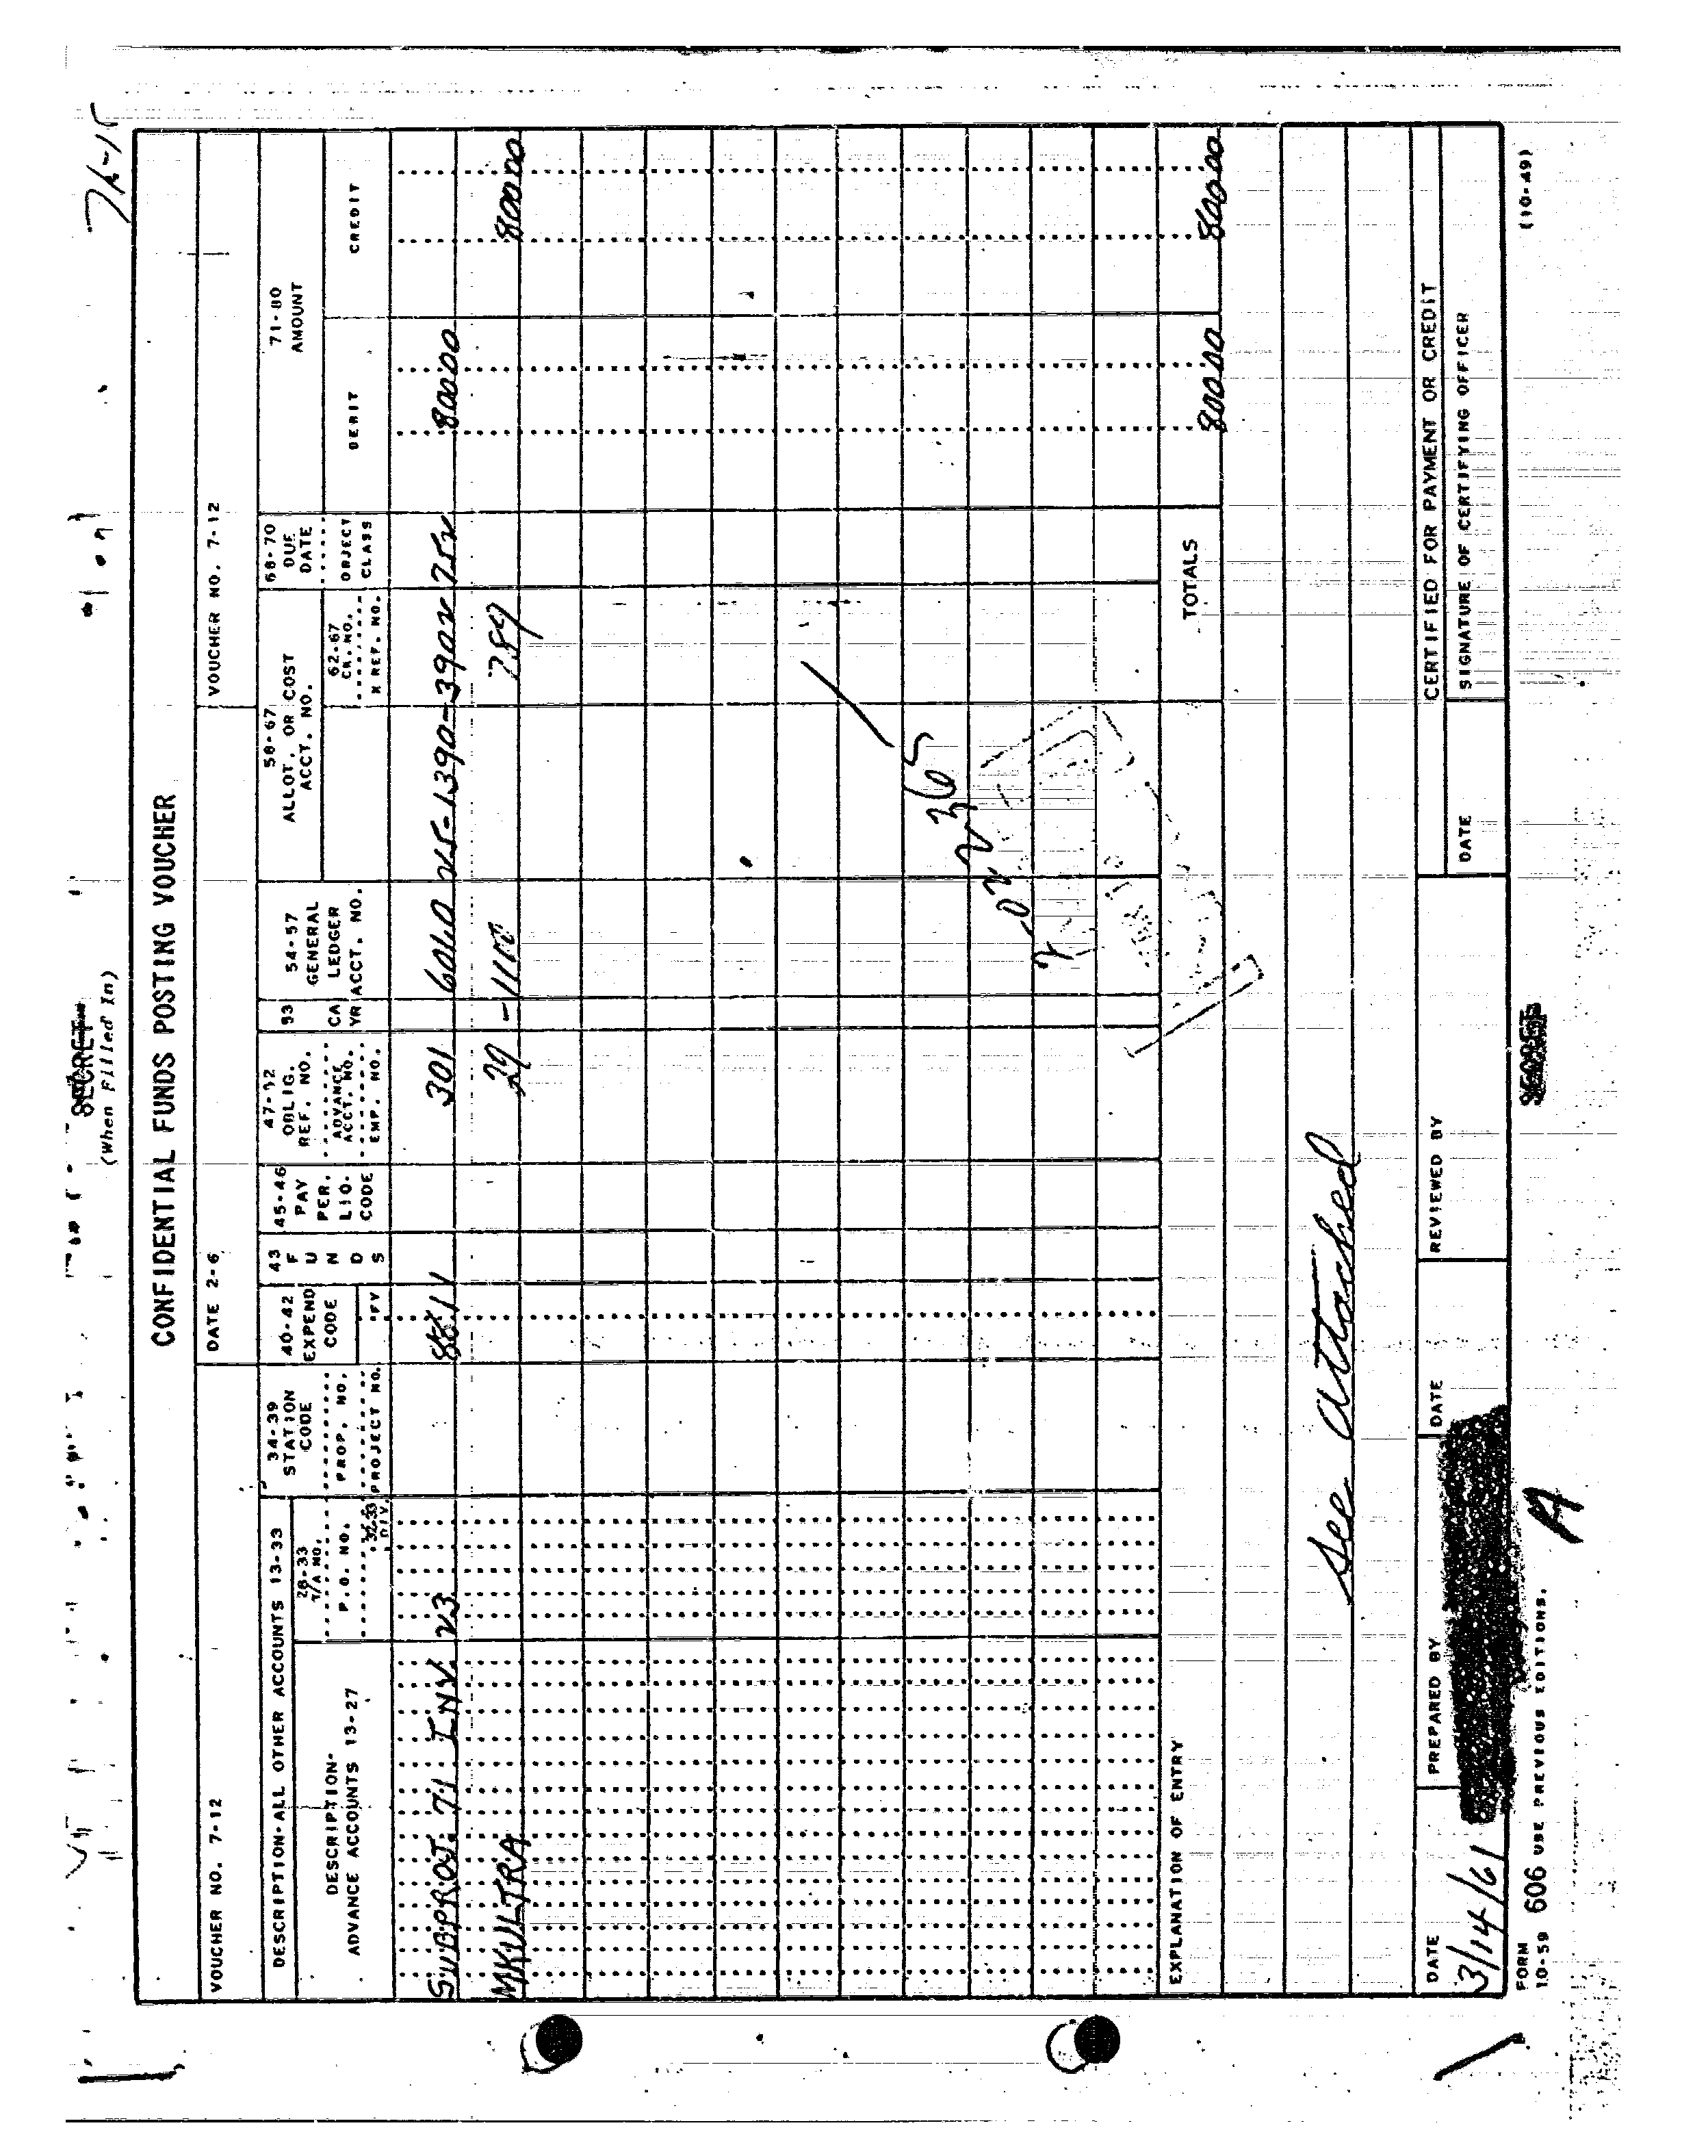 71-15
SECRET
(When Filled In)
CONFIDENTIAL FUNDS POSTING VOUCHER
VOUCHER NO. 7-12
DATE 2-6
VOUCHER NO. 7-12
DESCRIPTION-ALL OTHER ACCOUNTS 13-33
DESCRIPTION-
ADVANCE ACCOUNTS 13-27
28-33
T/A NO.
P.O. NO.
32-33
DIV
34-39
STATION
CODE
PROP. NO.
PROJECT NO.
40-42
EXPEND
CODE
FY
43
F
U
N
D
S
45-46
PAY
PER.
LIQ.
CODE
47-52
OBLIG.
REF. NO.
ADVANCE
ACCT. NO.
EMP. NO.
53
CA
YR
54-57
GENERAL
LEDGER
ACCT. NO.
58-67
ALLOT. OR COST
ACCT. NO.
62-67
CK. NO.
X REF. NO.
68-70
DUE
DATE
OBJECT
CLASS
71-80
AMOUNT
DEBIT
CREDIT
SUBPROJ. 71 INV. 23 301 25-1390-3902 752 80000
MKULTRA 29 789 80000
TOTALS 80000 80000
EXPLANATION OF ENTRY
See attached
DATE
PREPARED BY
DATE
REVIEWED BY
CERTIFIED FOR PAYMENT OR CREDIT
DATE
SIGNATURE OF CERTIFYING OFFICER
3/14/61
FORM
10-59 606 USE PREVIOUS EDITIONS.
A
SECRET
(10-49)